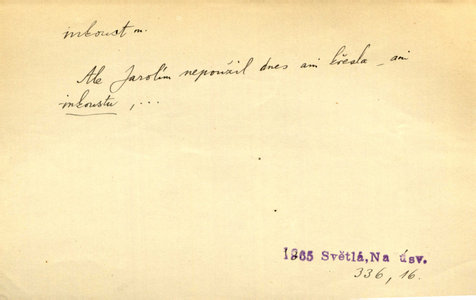 inkoust m.
Ale Jarolím nepoužil dnes ani křesla, ani
inkoustu, ...
1865 Světlá, Na úsv.
336, 16.